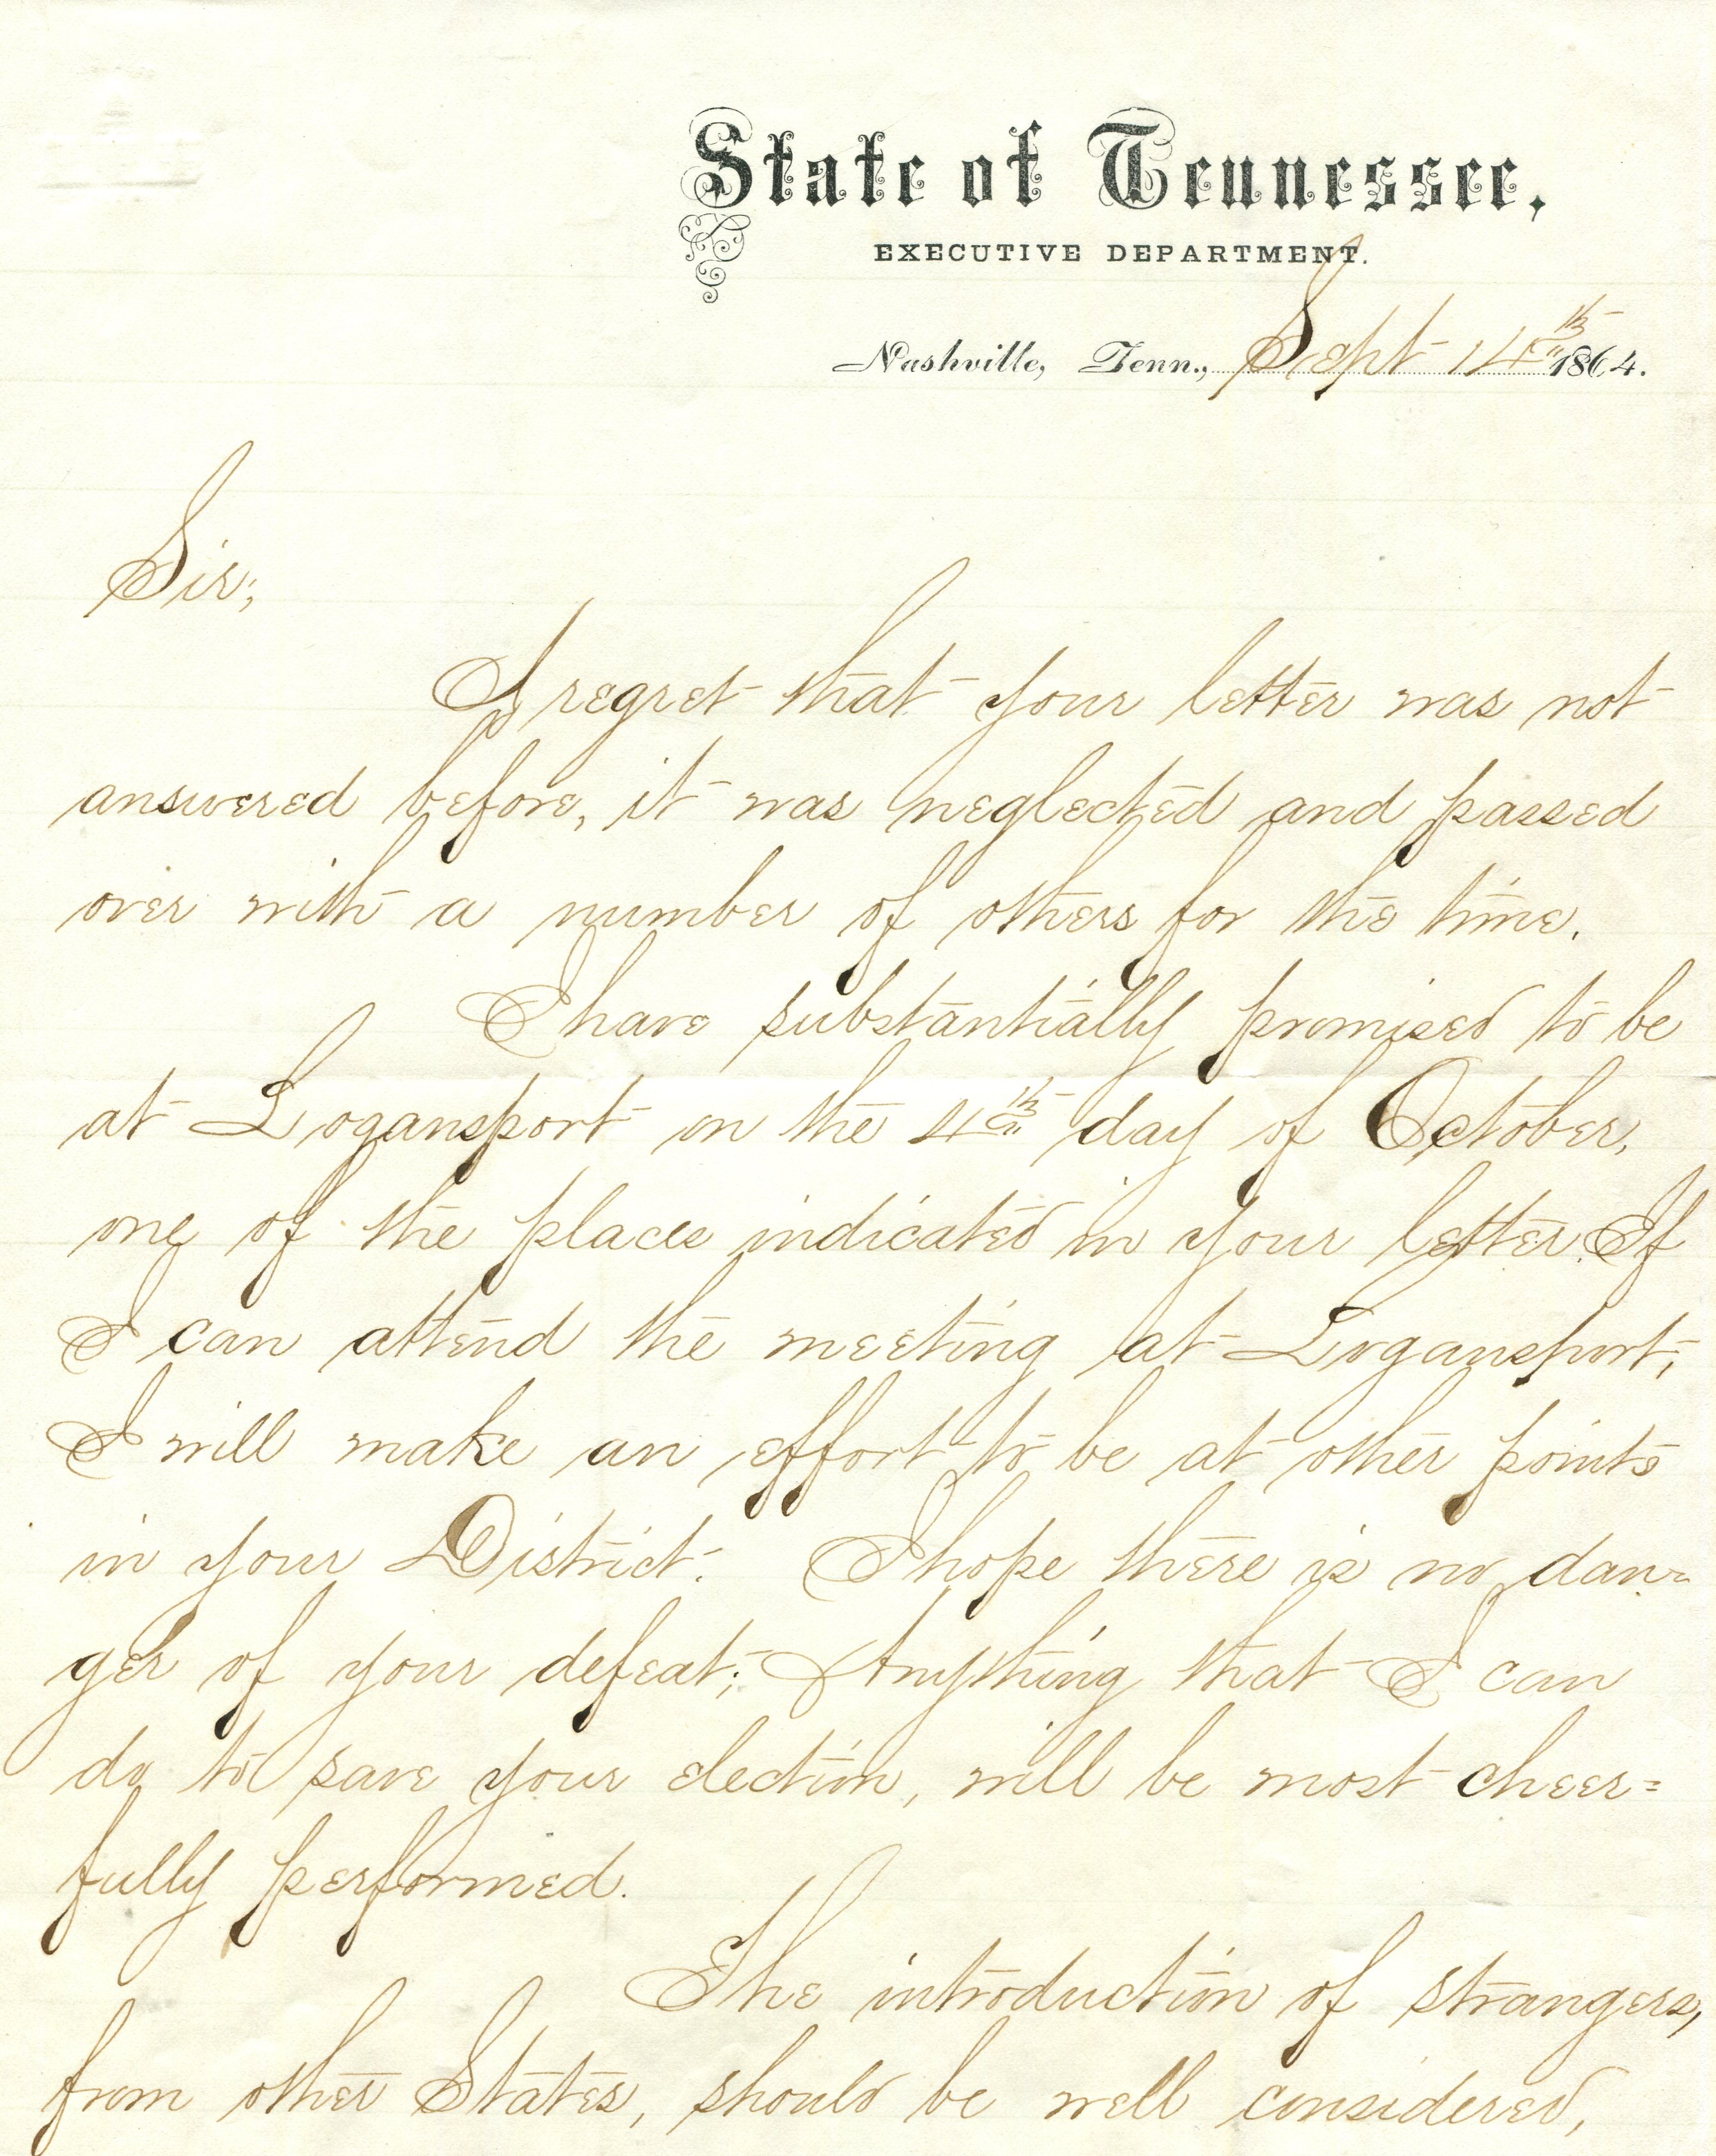 State of Tennessee,
EXECUTIVE DEPARTMENT.
Nashville, Tenn., Sept 14th 1864.
Sir;
I regret that your letter was not
answered before, it was neglected and passed
over with a number of others for the time.
I have substantially promised to be
at Logansport on the 4th day of October,
one of the places indicated in your letter. If
I can attend the meeting at Logansport,
I will make an effort to be at other points
in your District. I hope there is no dan=
ger of your defeat; Anything that I can
do to save your election, will be most cheer=
fully performed.
The introduction of strangers,
from other States, should be well considered,